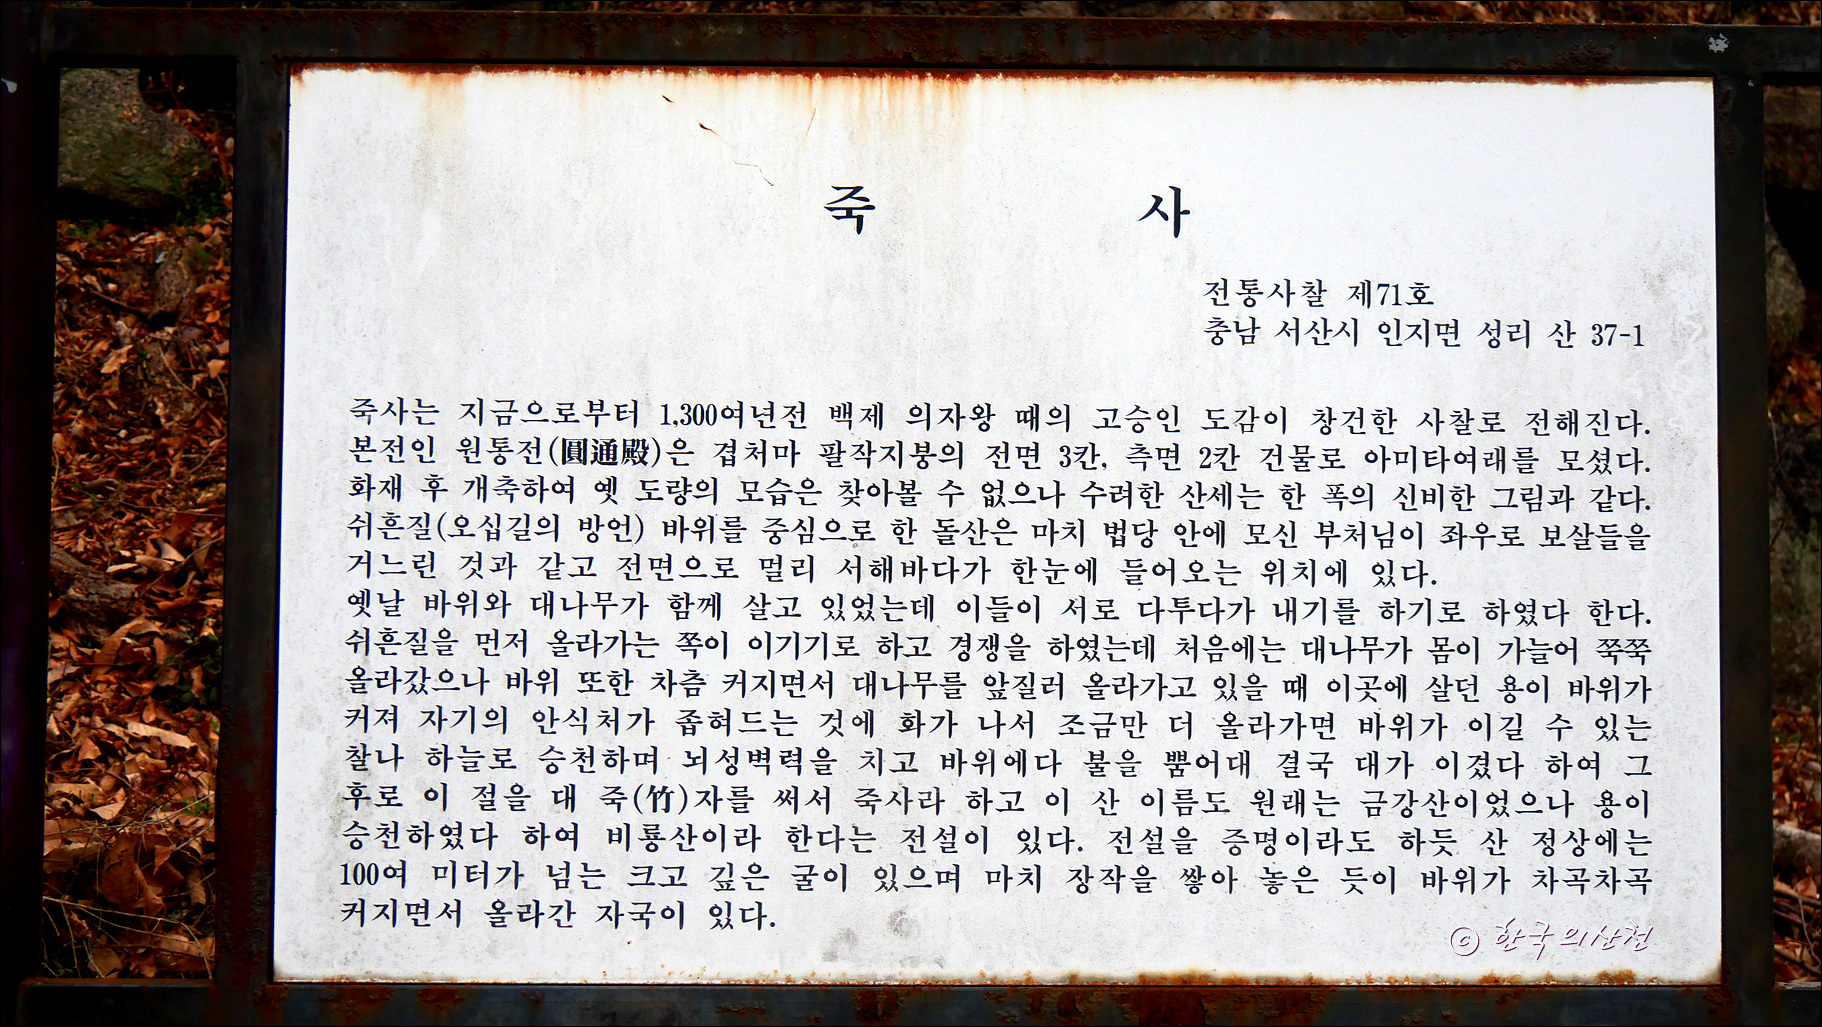 죽 사
전통사찰 제71호
충남 서산시 인지면 성리 산 37-1
죽사는 지금으로부터 1,300여년전 백제 의자왕 때의 고승인 도감이 창건한 사찰로 전해진다.
본전인 원통전(圓通殿)은 겹처마 팔작지붕의 전면 3칸, 측면 2칸 건물로 아미타여래를 모셨다.
화재 후 개축하여 옛 도량의 모습은 찾아볼 수 없으나 수려한 산세는 한 폭의 신비한 그림과 같다.
쉬흔질(오십길의 방언) 바위를 중심으로 한 돌산은 마치 법당 안에 모신 부처님이 좌우로 보살들을
거느린 것과 같고 전면으로 멀리 서해바다가 한눈에 들어오는 위치에 있다.
옛날 바위와 대나무가 함께 살고 있었는데 이들이 서로 다투다가 내기를 하기로 하였다 한다.
쉬흔질을 먼저 올라가는 쪽이 이기기로 하고 경쟁을 하였는데 처음에는 대나무가 몸이 가늘어 쭉쭉
올라갔으나 바위 또한 차츰 커지면서 대나무를 앞질러 올라가고 있을 때 이곳에 살던 용이 바위가
커져 자기의 안식처가 좁혀드는 것에 화가 나서 조금만 더 올라가면 바위가 이길 수 있는
찰나 하늘로 승천하며 뇌성벽력을 치고 바위에다 불을 뿜어대 결국 대가 이겼다 하여 그
후로 이 절을 대 죽(竹)자를 써서 죽사라 하고 이 산 이름도 원래는 금강산이었으나 용이
승천하였다 하여 비룡산이라 한다는 전설이 있다. 전설을 증명이라도 하듯 산 정상에는
100여 미터가 넘는 크고 깊은 굴이 있으며 마치 장작을 쌓아 놓은 듯이 바위가 차곡차곡
커지면서 올라간 자국이 있다.
ⓒ 한국의산천